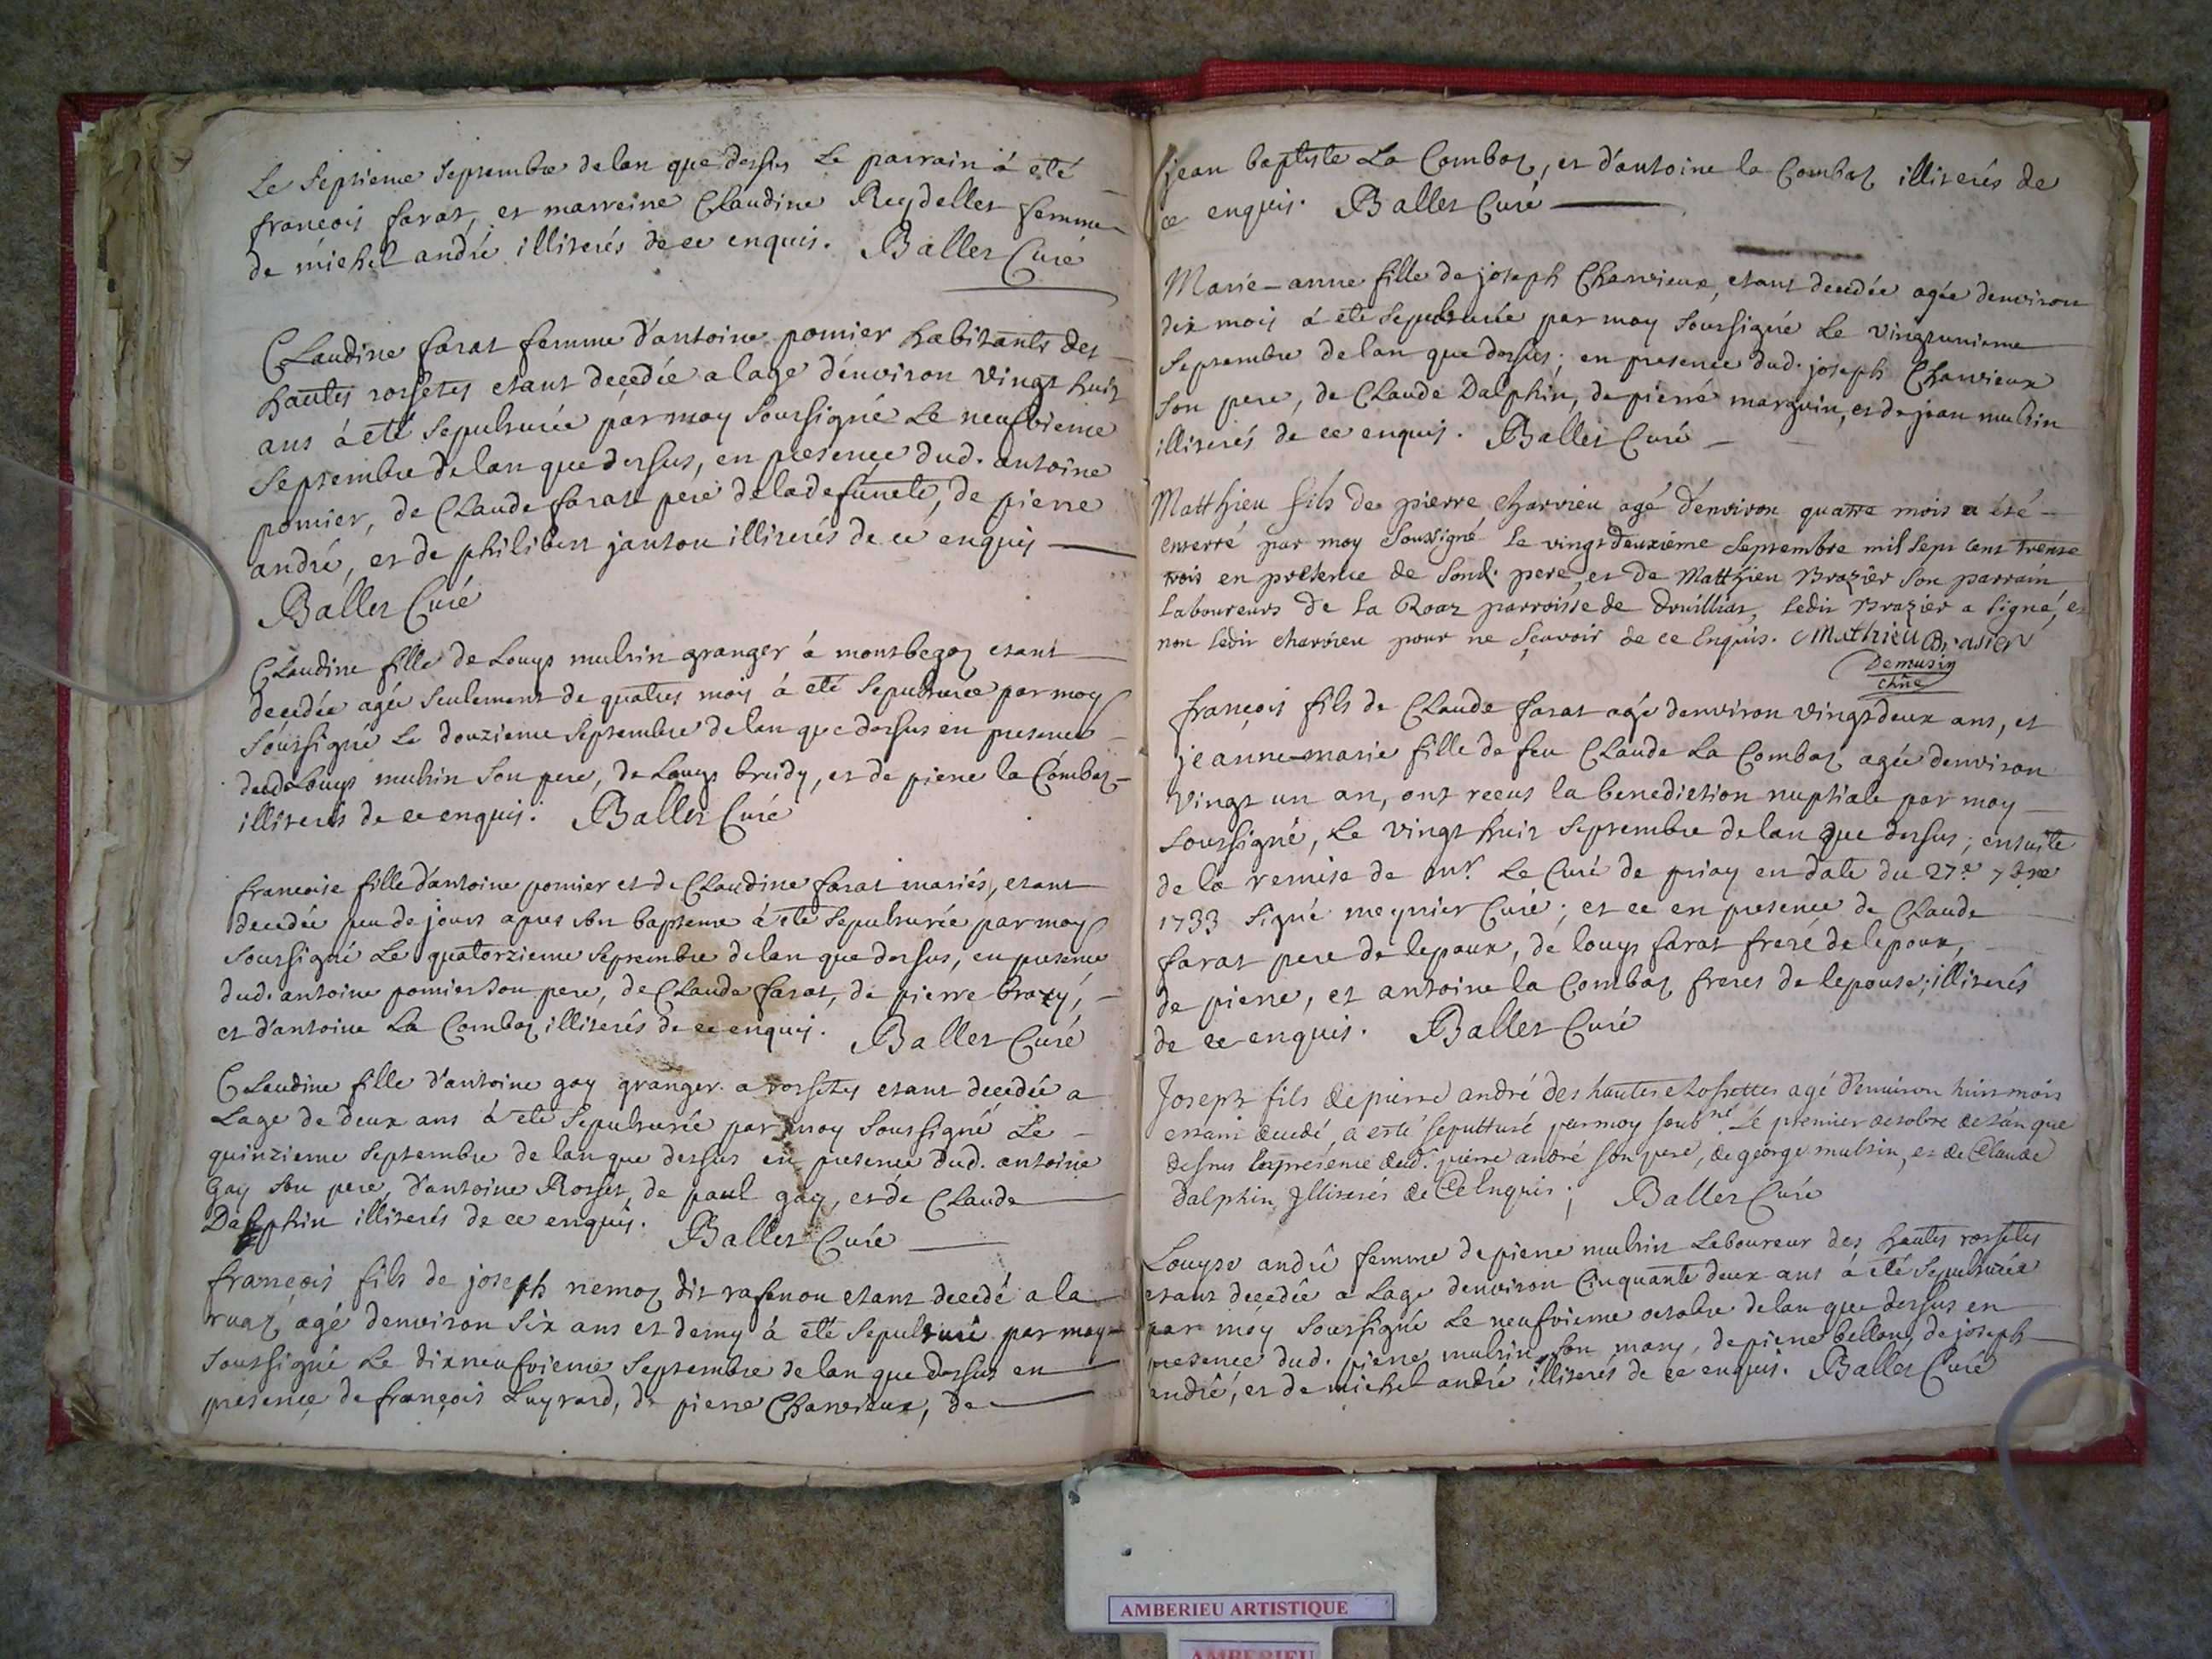 Le septieme septembre de lan que dessus Le parrain à eté
françois farat, et marreine Claudine Reydellet femme
de michel andré illiterés de ce enquis. Ballet Curé
Claudine farat femme d'antoine pomier habitants des
hautes rossetes etant decedée a lage d'environ vingt huit
ans à eté sepulturée par moy soussigné Le neufvieme
septembre de lan que dessus, en presence dud. antoine
pomier, de Claude farat pere de la defuncte, de pierre
andré, et de philibert janton illiterés de ce enquis
Ballet Curé
Claudine fille de Louys mulsin granger à montbegoz etant
decedée agée seulement de quatres mois à eté sepulturée par moy
soussigné Le douzieme septembre de lan que dessus en presence
dud. Louys mulsin son pere, de Louys breidy, et de pierre la Combaz
illiterés de ce enquis. Ballet Curé
francoise fille d'antoine pomier et de Claudine farat mariés, etant
decedée peu de jours apres son bapteme à eté sepulturée par moy
soussigné Le quatorzieme septembre de lan que dessus, en presence
dud. antoine pomier son pere, de Claude farat, de pierre
et d'antoine La Combaz illiterés de ce enquis. Ballet Curé
Claudine fille d'antoine gay granger a rossetes etant decedée a
Lage de deux ans à eté sepulturée par moy soussigné Le
quinzieme septembre de lan que dessus en presence dud. antoine
gay son pere, d'antoine Rosset, de paul gay, et de Claude
Dalphin illiterés de ce enquis. Ballet Curé
françois fils de joseph nemoz dit rafenou etant decedé a la
ruaz agé denviron six ans et demy à eté sepulturé par moy
soussigné Le dixneufvieme septembre de lan que dessus en
presence de françois Luyrard, de pierre Charvieux, de
jean baptiste La Combaz, et d'antoine la Combaz illiterés de
ce enquis. Ballet Curé
Marie-anne fille de joseph Charvieux, etant decedée agée denviron
dix mois à eté sepulturée par moy soussigné Le vingtunieme
septembre de lan que dessus; en presence dud. joseph Charvieux
son pere, de Claude Dalphin, de pierre marguin, et de jean mulsin
illiterés de ce enquis. Ballet Curé
Matthieu fils de pierre charvieu agé d'environ quatre mois a été
enterré par moy soussigné le vingtdeuxiéme septembre mil sept cent trente
trois en presence de sond. pere, et de Matthieu Brazier son parrain
laboureurs de la Roaz parroisse de Druilliat, ledit Brazier a signé, e
non ledit charvieu pour ne sçavoir de ce Enquis. Mathieu Brasier
Demusin
chne
françois fils de Claude farat agé denviron vingtdeux ans, et
jeanne-marie fille de feu Claude La Combaz agée denviron
vingt un an, ont receus la benediction nuptiale par moy
soussigné, Le vingt huit septembre de lan que dessus; ensuite
de la remise de mr. Le Curé de priay en date du 27e 7bre
1733 signé meynier Curé; et ce en presence de Claude
farat pere de lepoux, de louys farat frere de lepoux,
de pierre, et antoine la Combaz freres de lepouse; illiterés
de ce enquis. Ballet Curé
Joseph fils de pierre andré des hautes Rossettes agé d'enuiron huit mois
estant decedé, a esté sepulturé par moy soubné. Le premier octobre de l'an que
dessus en presence dud. pierre andré son pere, de george mulsin, et de Claude
Dalphin Illiterés de Ce Enquis; Ballet Curé
Louyse andré femme de pierre mulsin Laboureur des hautes rossetes
etant decedée a Lage denviron Cinquante deux ans à eté sepulturée
par moy soussigné Le neufvieme octobre de lan que dessus en
presence dud. pierre mulsin son mary, de pierre bellon, de joseph
andré, et de michel andré illiterés de ce enquis. Ballet Curé
AMBERIEU ARTISTIQUE
AMBERIEU